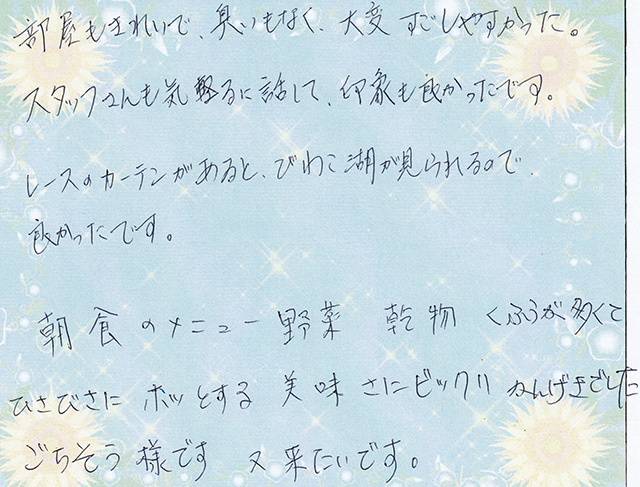 部屋もきれいで、臭いもなく、大変すごしやすかった。
スタッフさんも気軽るに話して、印象も良かったです。
レースのカーテンがあると、びわこ湖が見られるので、
良かったです。
朝食のメニュー 野菜 乾物 くふうが多くて
ひさびさに ホッとする 美味 さにビックリ かんげきでした
ごちそう様です 又来たいです。